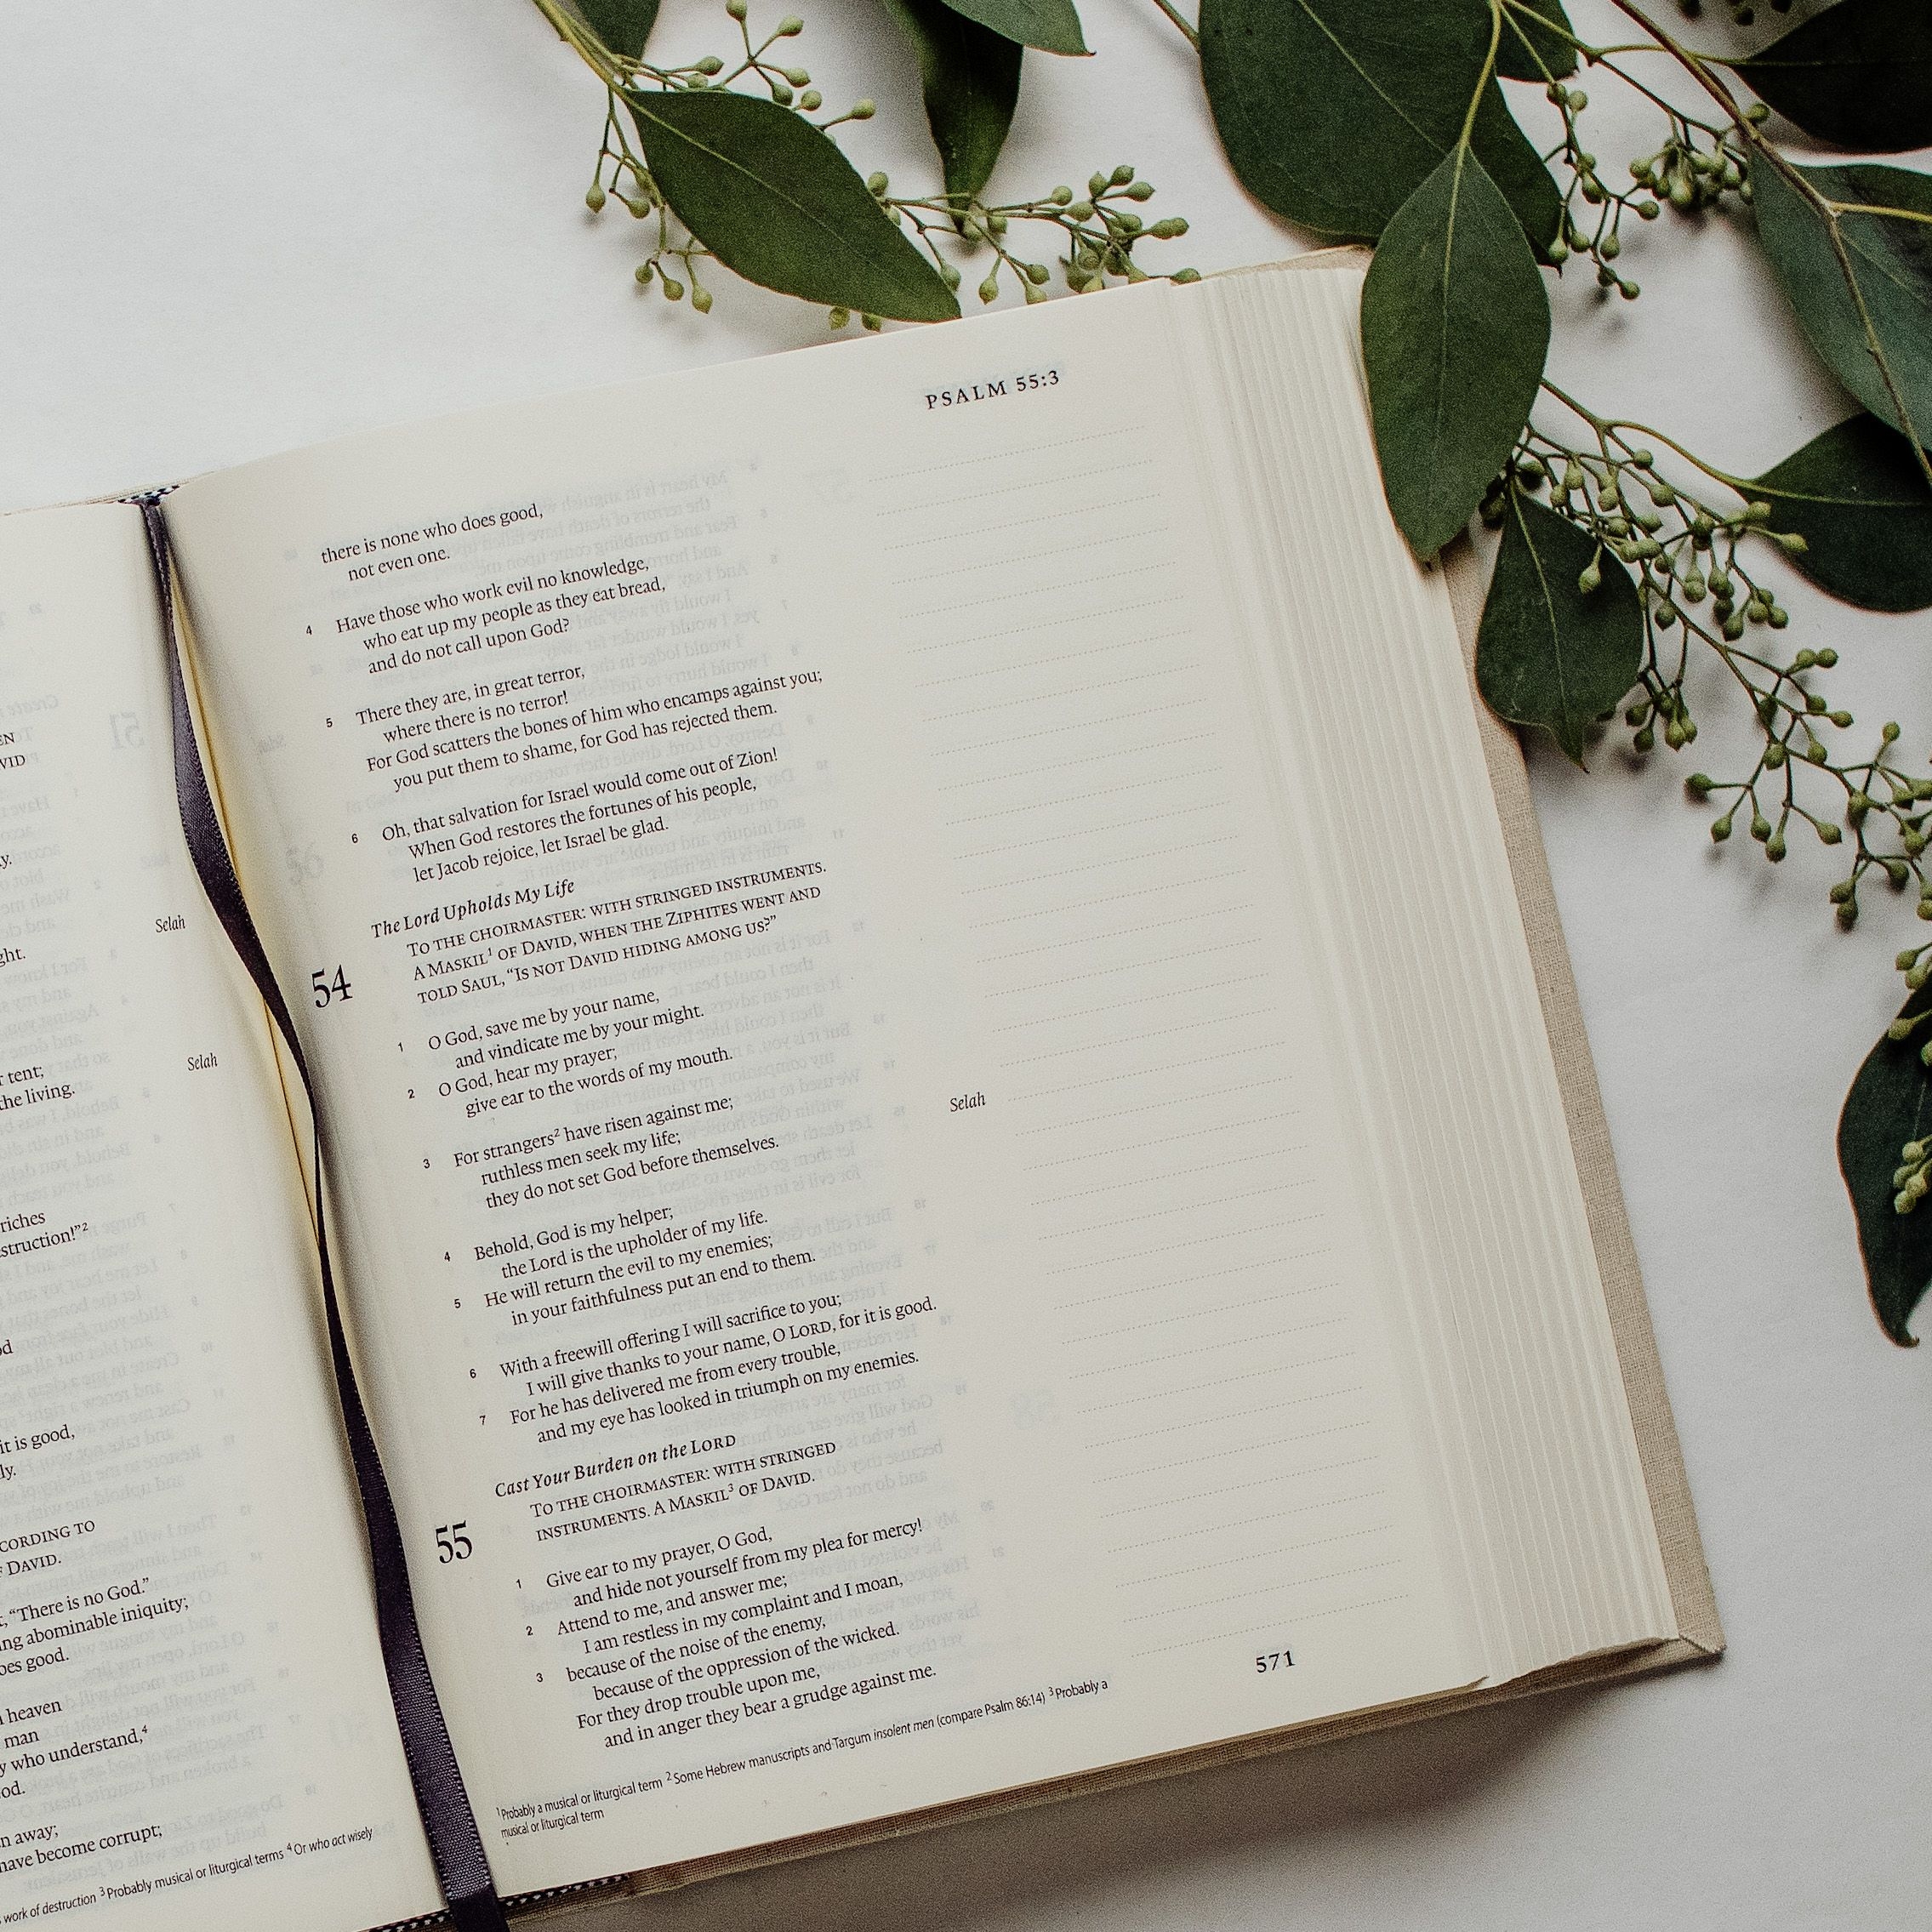 EN
VID
y.
Selah
ght.
Selah
r tent;
the living.
riches
struction!”²
od
it is good,
ly.
CCORDING TO
F DAVID.
t, “There is no God.”
ing abominable iniquity;
oes good.
heaven
man
y who understand,⁴
od.
n away;
have become corrupt;
work of destruction ³Probably musical or liturgical terms ⁴Or who act wisely
PSALM 55:3
there is none who does good,
not even one.
4 Have those who work evil no knowledge,
who eat up my people as they eat bread,
and do not call upon God?
5 There they are, in great terror,
where there is no terror!
For God scatters the bones of him who encamps against you;
you put them to shame, for God has rejected them.
6 Oh, that salvation for Israel would come out of Zion!
When God restores the fortunes of his people,
let Jacob rejoice, let Israel be glad.
The Lord Upholds My Life
54 TO THE CHOIRMASTER: WITH STRINGED INSTRUMENTS.
A MASKIL¹ OF DAVID, WHEN THE ZIPHITES WENT AND
TOLD SAUL, “IS NOT DAVID HIDING AMONG US?”
1 O God, save me by your name,
and vindicate me by your might.
2 O God, hear my prayer;
give ear to the words of my mouth.
3 For strangers² have risen against me;
ruthless men seek my life;
they do not set God before themselves. Selah
4 Behold, God is my helper;
the Lord is the upholder of my life.
5 He will return the evil to my enemies;
in your faithfulness put an end to them.
6 With a freewill offering I will sacrifice to you;
I will give thanks to your name, O LORD, for it is good.
7 For he has delivered me from every trouble,
and my eye has looked in triumph on my enemies.
Cast Your Burden on the LORD
55 TO THE CHOIRMASTER: WITH STRINGED
INSTRUMENTS. A MASKIL³ OF DAVID.
1 Give ear to my prayer, O God,
and hide not yourself from my plea for mercy!
2 Attend to me, and answer me;
I am restless in my complaint and I moan,
3 because of the noise of the enemy,
because of the oppression of the wicked.
For they drop trouble upon me,
and in anger they bear a grudge against me.
¹Probably a musical or liturgical term ²Some Hebrew manuscripts and Targum insolent men (compare Psalm 86:14) ³Probably a
musical or liturgical term
571